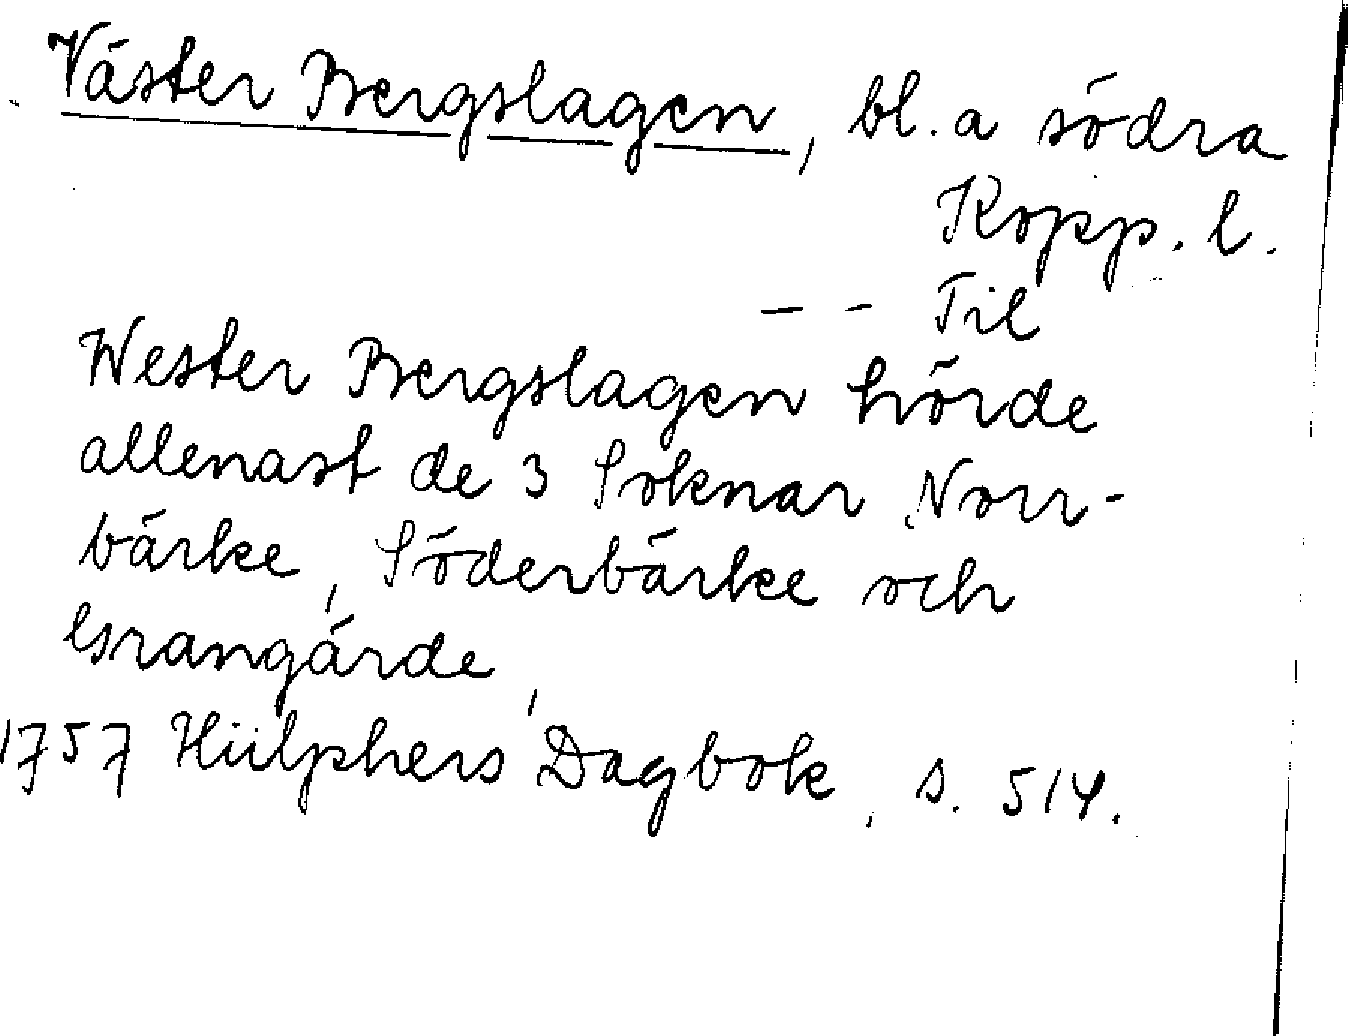 Väster Bergslagen, bl.a södra
Kopp. l.
– – Til
Wester Bergslagen hörde
allenast de 3 Soknar Norr-
bärke, Söderbärke och
Grangärde,
1757 Hülphers Dagbok, s. 514.